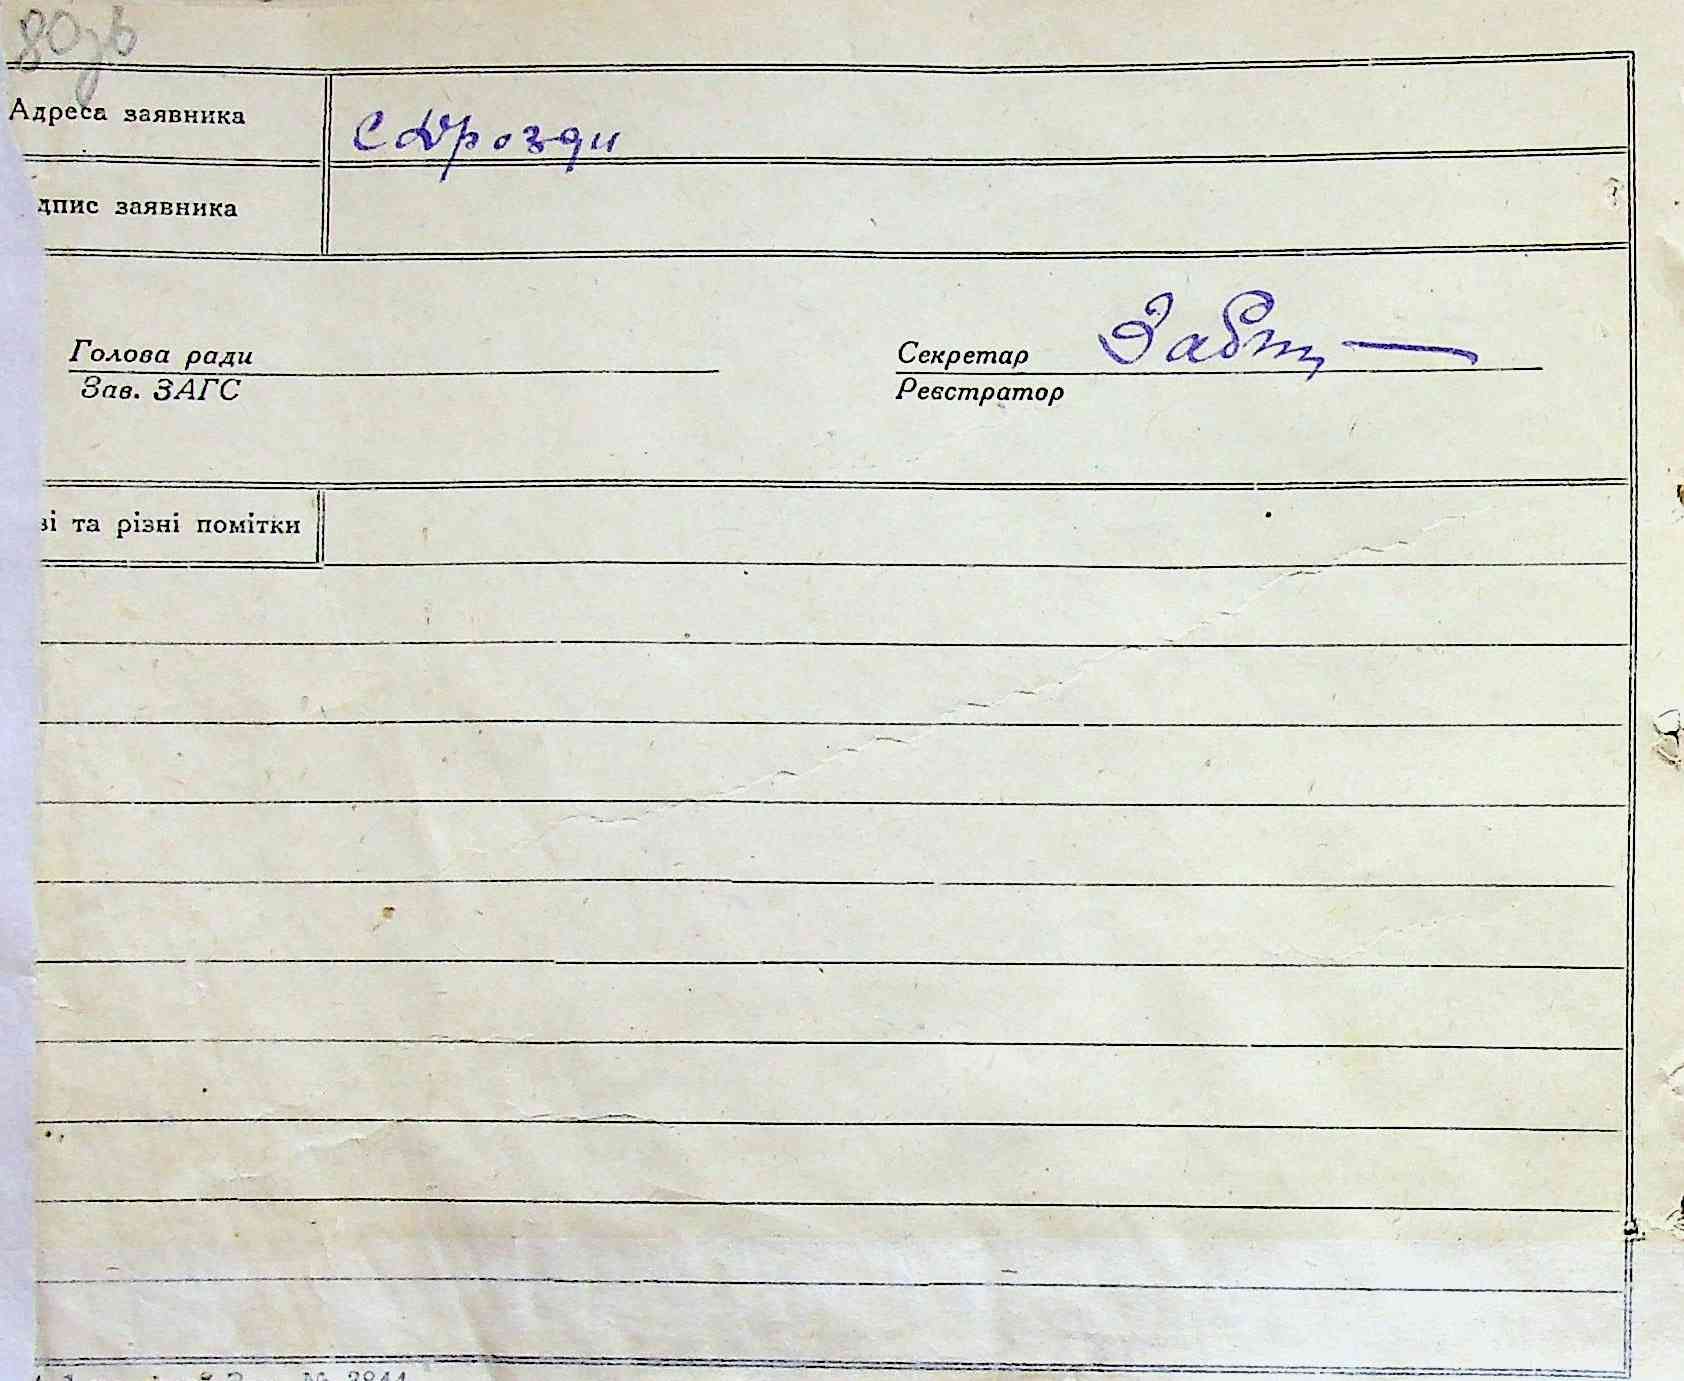 80зв
Адреса заявника
с Дрозди
дпис заявника
Голова ради
Секретар
Зав. ЗАГС
Реєстратор
зі та різні помітки
№ 3844